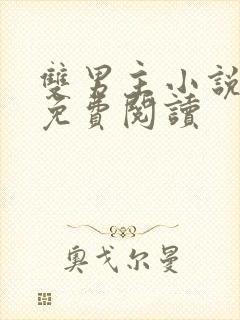 雙男主小說
免費閱讀
奧戈尔曼